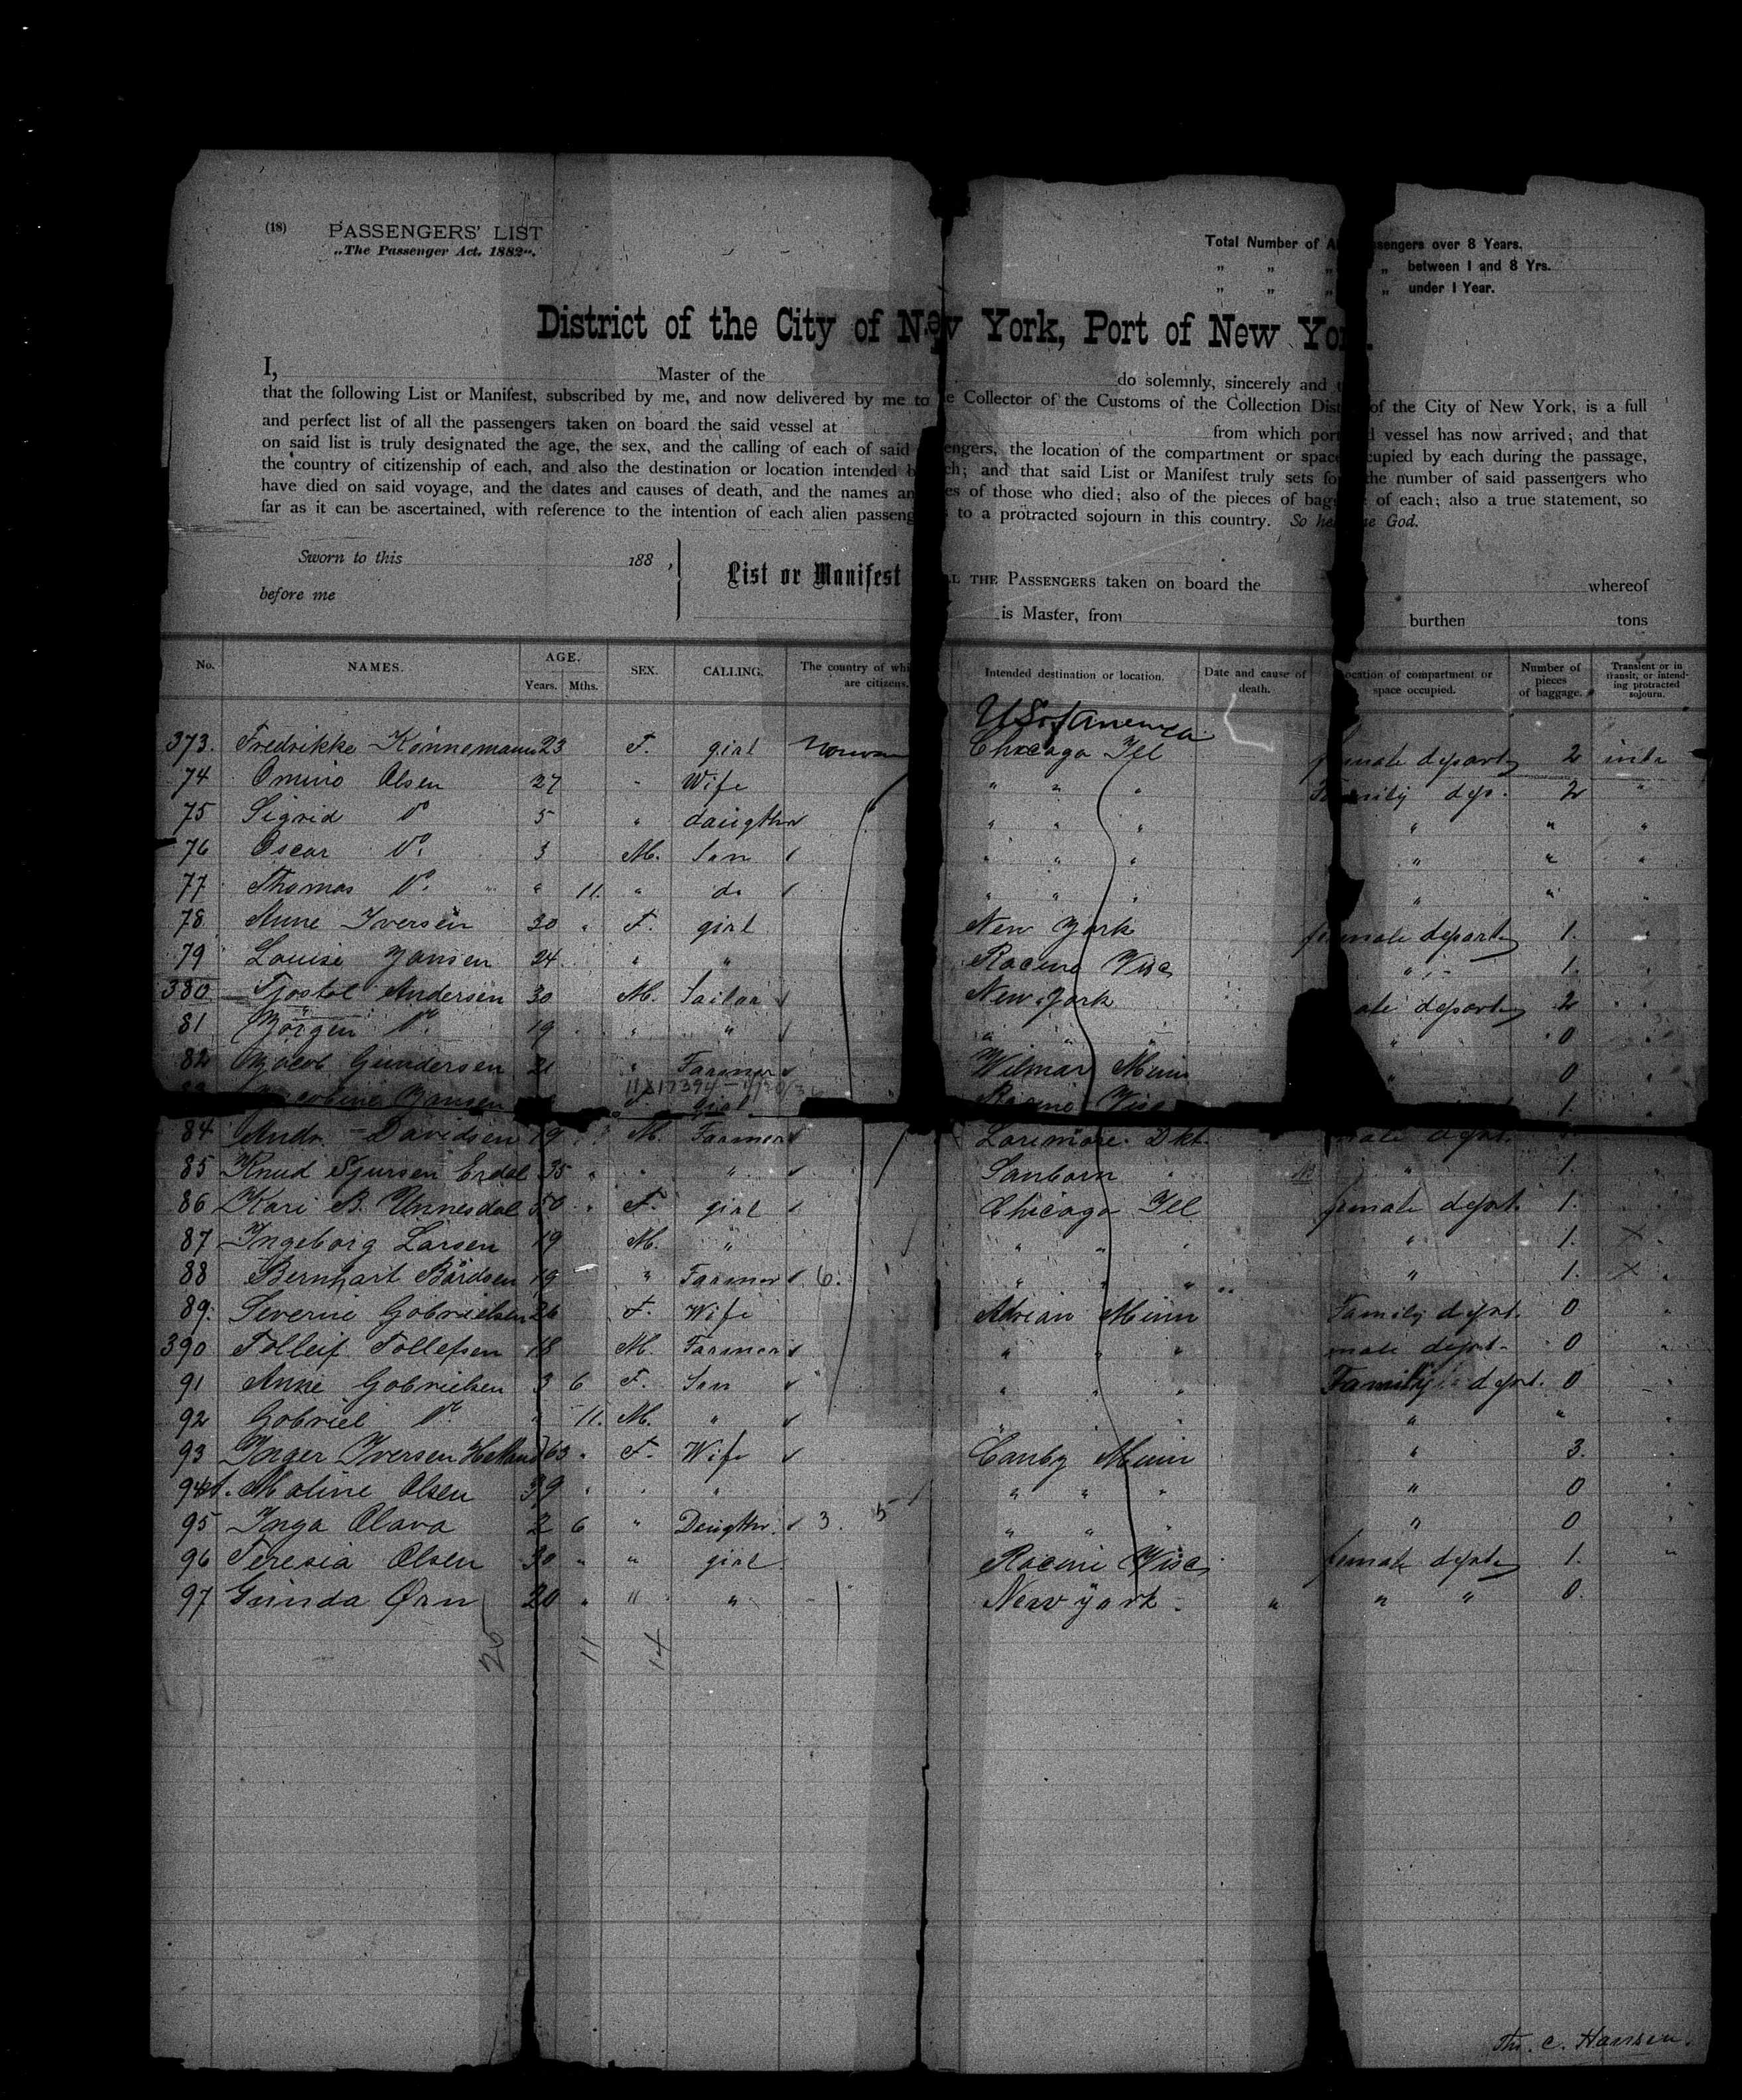 (18) PASSENGERS' LIST
„The Passenger Act. 1882".
Total Number of A ssengers over 8 Years.
„ „ „ „ between 1 and 8 Yrs.
„ „ „ „ under 1 Year.
District of the City of New York, Port of New Yor .
I, Master of the do solemnly, sincerely and
that the following List or Manifest, subscribed by me, and now delivered by me to e Collector of the Customs of the Collection Dist of the City of New York, is a full
and perfect list of all the passengers taken on board the said vessel at from which port d vessel has now arrived; and that
on said list is truly designated the age, the sex, and the calling of each of said engers, the location of the compartment or space cupied by each during the passage,
the country of citizenship of each, and also the destination or location intended b ch; and that said List or Manifest truly sets fo the number of said passengers who
have died on said voyage, and the dates and causes of death, and the names an es of those who died; also of the pieces of bag of each; also a true statement, so
far as it can be ascertained, with reference to the intention of each alien passeng to a protracted sojourn in this country. So he me God.
Sworn to this 188 ,
before me
List or Manifest LL THE PASSENGERS taken on board the whereof
is Master, from burthen tons
No. NAMES. AGE. Years. Mths. SEX. CALLING. The country of whi are citizens. Intended destination or location. Date and cause of death. ocation of compartment or space occupied. Number of pieces of baggage. Transient or in transit, or intending protracted sojourn.
U S of America
373. Fredrikke Könnemann 23 F. girl Norwa Chicago Ill female depart 2
74 Omino Olsen 27 " Wife " " " Family dep. 2 "
75 Sigrid Do 5 " daugther " " " " " "
76 Oscar Do. 3 M. Son " " " " " "
77 Thomas Do. " 11. " do " " " " " "
78 Anne Iversen 30 " F. girl New York female depart 1. "
79 Louise Jansen 24 " " Racine Visc " 1. "
380 Tjostol Andersen 30 M. Sailor New York ale depart 2 "
81 Jörgen Do. 19 " " " " 0
82 Jacob Gundersen 21 " Farmer Wilmar Minn " 0
11X17394 - 1/30/3
Jacobine Jansen F. girl Racine Visc 1.
84 Andr. Davidsen 19 M. Farmer Larimore Dkt. male dept.
85 Knud Sjursen Erdal 35 " " " Sanborn " " 1.
86 Kari B. Unnesdal 50 " F. girl Chicago Ill female dept. 1.
87 Ingeborg Larsen 19 M. " " " " " 1. X
88 Bernhart Bärdsen 19 " Farmer 6. " " " " 1. X
89. Severine Gabrielsen 26 F. Wife Adrian Minn Family dept. 0 "
390 Tolleif Tollefsen 18 M. Farmer " " " male dept. 0 "
91 Anne Gabrielsen 3 6 F. Son " " " Family dept. 0 "
92 Gabriel Do. " 11. M. " " " " " "
93 Inger Iversen 63 " F. Wife Canby Minn " 3. "
94 Maline Olsen 39 " " " " " " " 0 "
95 Inga Olava 2 6 " Daugther. 3. 5 " " " " 0 "
96 Teresia Olsen 30 " " girl Racine Visc female dept 1. "
97 Gunda Ørn 20 " " " New york " " " 0.
25 11 14
Th. C. Hansen.